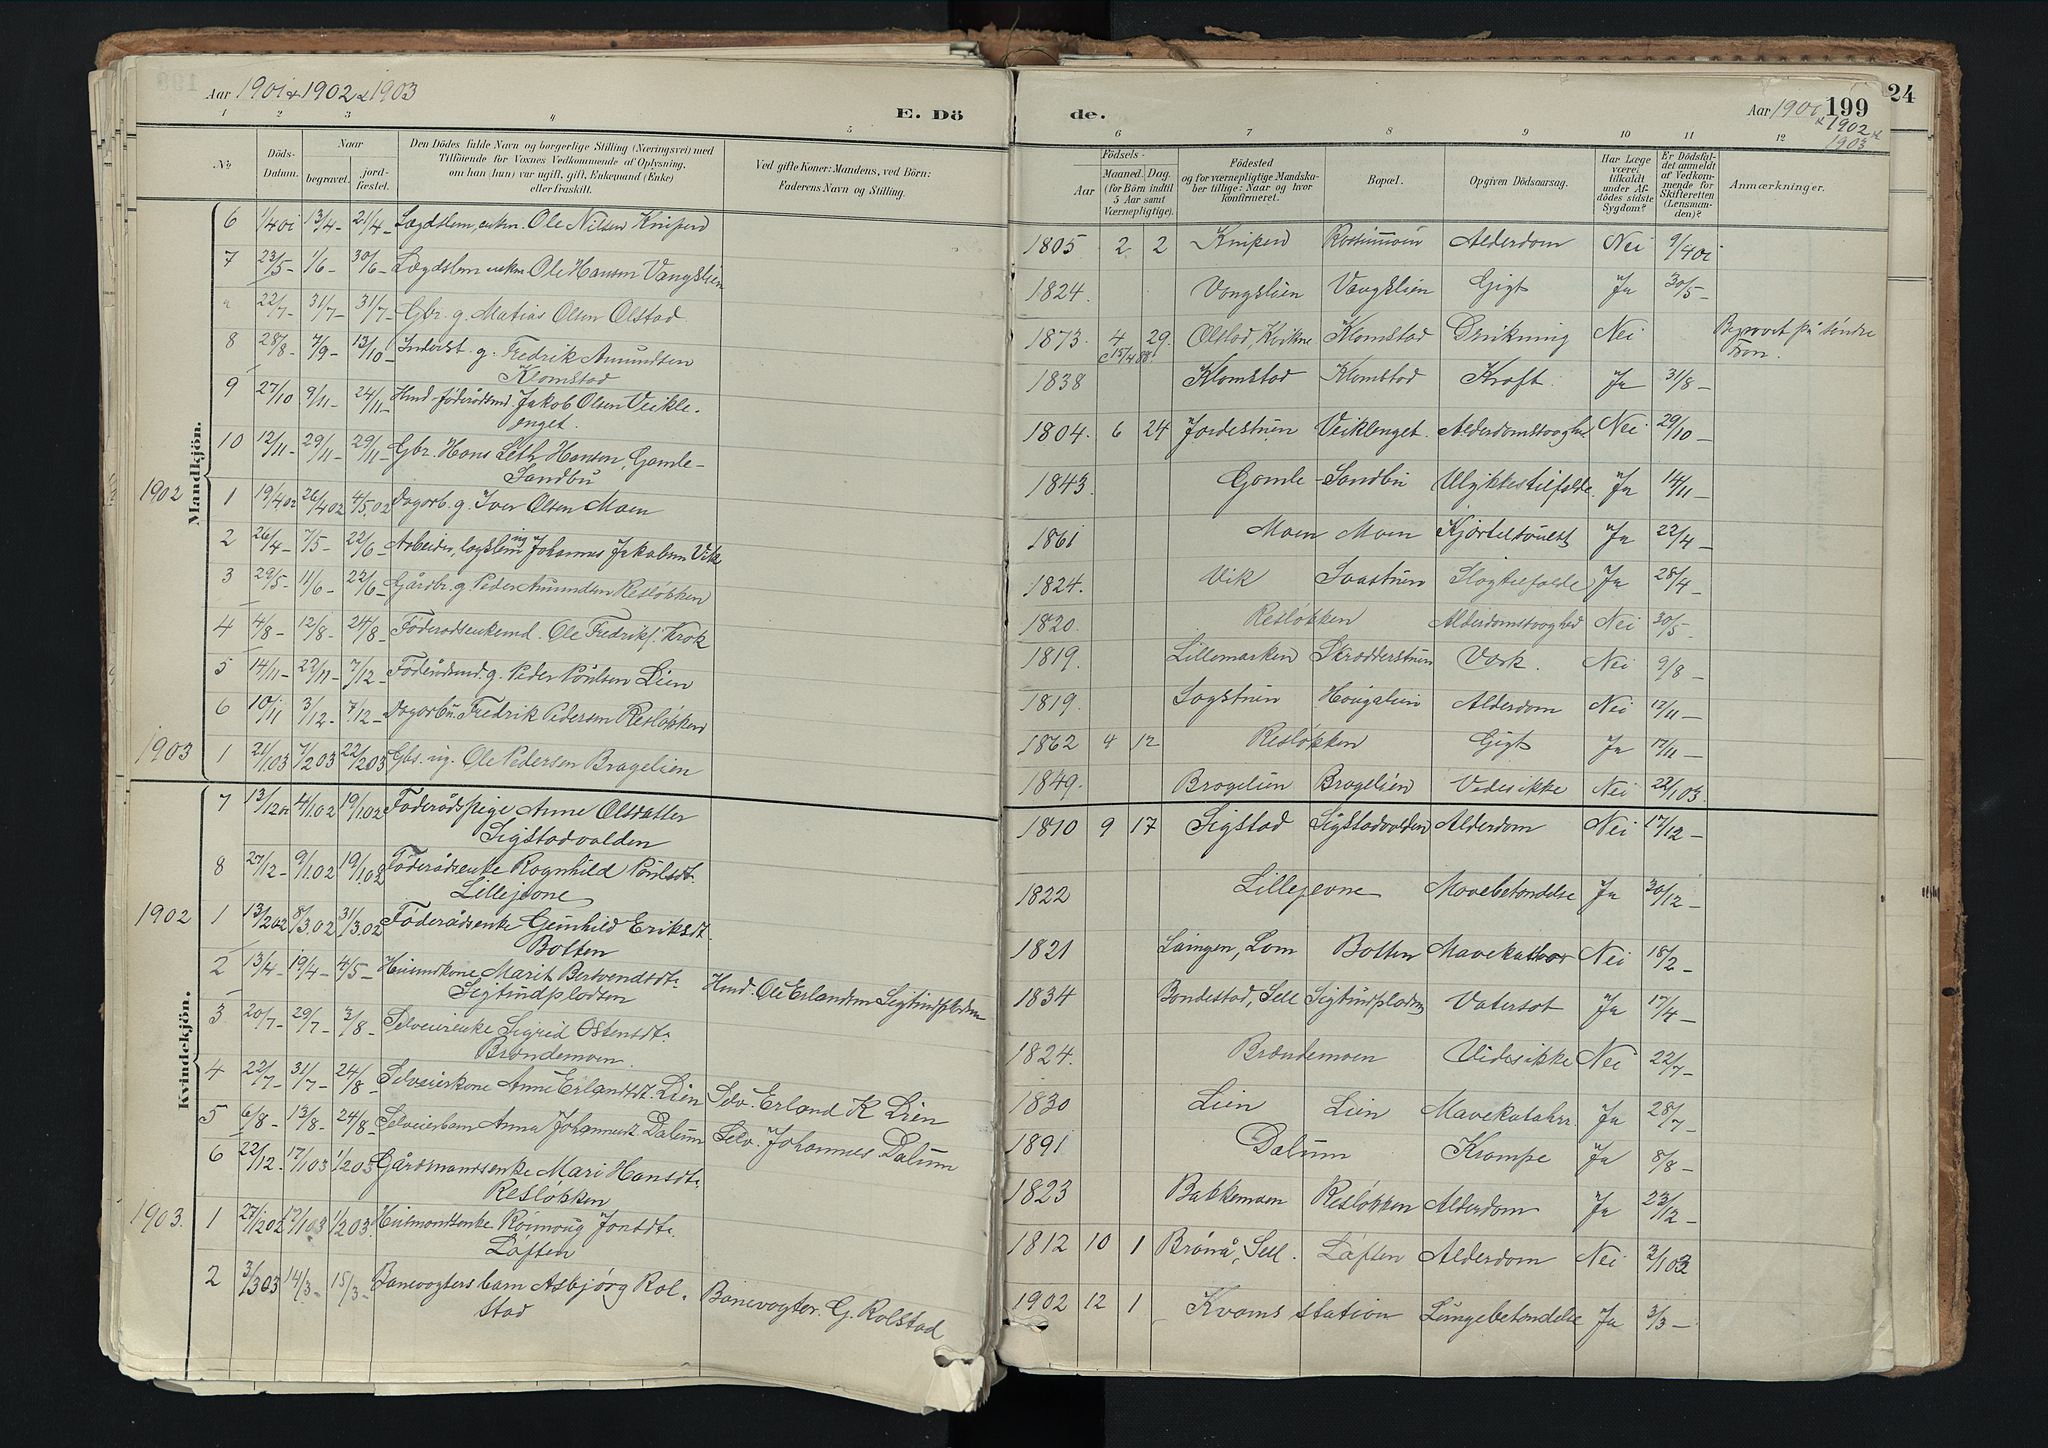 Aar 1901 & 1902 & 1903
E. Dö
1 2 3 4 5
No
Döds-Datum.
Naar
begravet.
jord-fæstet.
Den Dödes fulde Navn og borgerlige Stilling (Næringsvei) med
Tilföiende for Voxnes Vedkommende af Oplysning,
om han (hun) var ugift, gift, Enkemand (Enke)
eller fraskilt.
Ved gifte Koner: Mandens, ved Börn:
Faderens Navn og Stilling.
Mandkjön.
6 1/4 01 13/4- 21/4- Lægdslem, enkm. Ole Nilsen Kniperd
7 23/5- 1/6- 30/6- Lægdslem enkm Ole Hansen Vangslien
22/7- 31/7- 31/7- Gbr. g. Matias Olsen Olstad
8 28/8- 7/9- 13/10- Inderst. g. Fredrik Amundsen
Klomstad
9 27/10 9/11- 24/11- Hmd föderådsmd. Jakob Olsen Veikle-
enget.
10 12/11 29/11- 29/11- Gbr. Hans Leth Hansen, Gamle-
Sandbu
1902 1 19/4 02 26/4 02 4/5 02 Dagarb. g. Iver Olsen Moen
2 26/4- 7/5- 22/6- Arbeider, lægslem ug Johannes Jakobsen Vik
3 29/5- 11/6- 22/6- Gårdbr. g. Peder Amundsen Resløkken
4 4/8- 12/8- 24/8- Föderadsenkemd. Ole Fredriks. Krok
5 14/11- 22/11- 7/12- Föderådsmd. g. Peder Pålsen Lien
6 10/11 3/12- 7/12- Dagarb. Fredrik Pedersen Resløkken
1903 1 21/1 03 7/2 03 22/2 03 Gbs. ug. Ole Pedersen Bragelien
Kvindekjön.
7 13/12 01 4/1 02 19/1 02 Föderådspige Anne Olsdatter
Sigstadvolden
8 27/12- 9/1 02 19/1 02 Föderådsenke Ragnhild Pålsdt.
Lillejevne
1902 1 13/2 02 8/3 02 31/3 02 Föderådsenke Gunhild Eriksdt.
Bolten
2 13/4- 19/4- 4/5- Husmdkone Marit Bertvendsdt. Hmd. Ole Erlandsen Sigtundpladsen
Sigtundpladsen
3 20/7- 29/7- 3/8- Selveierenke Sigrid Ostensdt.
Brændemoen
4 22/7- 31/7- 24/8- Selveierkone Anne Erlandsdt. Lien Selv. Erland K Lien
5 6/8- 13/8- 24/8- Selveierbarn Anna Johannesdt. Dalum Selv. Johannes Dalum
6 22/12- 17/1 03 1/2 03 Gårdmandsenke Mari Hansdt.
Resløkken
1903. 1 27/12 02 17/1 03 1/2 03 Husmandsenke Rönnoug Jonsdt.
Løften
2 3/3 03 14/3- 15/3- Banevogters barn Asbjörg Rol- Banevogter. G. Rolstad
stad
de.
Aar 1901 & 1902 & 1903
199
24
6 7 8 9 10 11 12
Födsels-
Aar
Maaned. Dag.
(for Börn indtil
5 Aar samt
Værnepligtige).
Födested
og for værnepligtige Mandska-
ber tillige: Naar og hvor
konfirmeret.
Bopæl.
Opgiven Dödsaarsag.
Har Læge
været
tilkaldt
under Af-
dödes sidste
Sygdom?
Er Dödsfal-
det anmeldt
af Vedkom-
mende for
Skifteretten
(Lensman-
den)?
Anmærkninger.
1805 2 2 Kniperd Alderdom Nei 9/4 01
1824. Vangslien Vangslien Gigt Ja 30/5-
1873. 4 29. Olstad, Kirkne Klomstad Drukning Nei
15/4 88.
Bygravet på søndre
Fron.
1838 Klomstad Klomstad Kræft. Ja 31/8-
1804. 6 24 Jordestuen Veiklenget. Alderdomssvaghed Nei 29/10-
1843. Gamle-Sandbu Ulykkestilfælde Ja 14/11-
1861 Moen Moen Kjørtelsvulst Ja 22/4-
1824. Vik Slagtilfælde Ja 28/4-
1820. Resløkken Alderdomssvaghed Nei 30/5-
1819. Lillemarken Skrædderstuen Værk. Nei 9/8-
1819. Sagstuen Hougalien Alderdom Nei 17/11-
1862 4 12 Resløkken Gigt Ja 17/11-
1849. Bragelien Bragelien Vides ikke Nei 22/1 03
1810 9 17 Sigstad Sigstadvolden Alderdom Nei 17/12-
1822 Lillejevne Mavebetændelse Ja 30/12-
1821 Lom Bolten Mavekatharr Nei 18/2-
1834 Bondestad, Sell Sigtundpladsen Vatersot Ja 17/4-
1824. Brændemoen Vides ikke Nei 22/7-
1830 Lien Lien Mavekatahr Ja 28/7-
1891 Dalum Krampe Ja 8/8-
1823 Bakkemoen Resløkken Alderdom Ja 23/12-
1812 10 1 Sell. Løften Alderdom Nei 2/1 03
1902 12 1 Kvams station Lungebetændelse Ja 3/3-